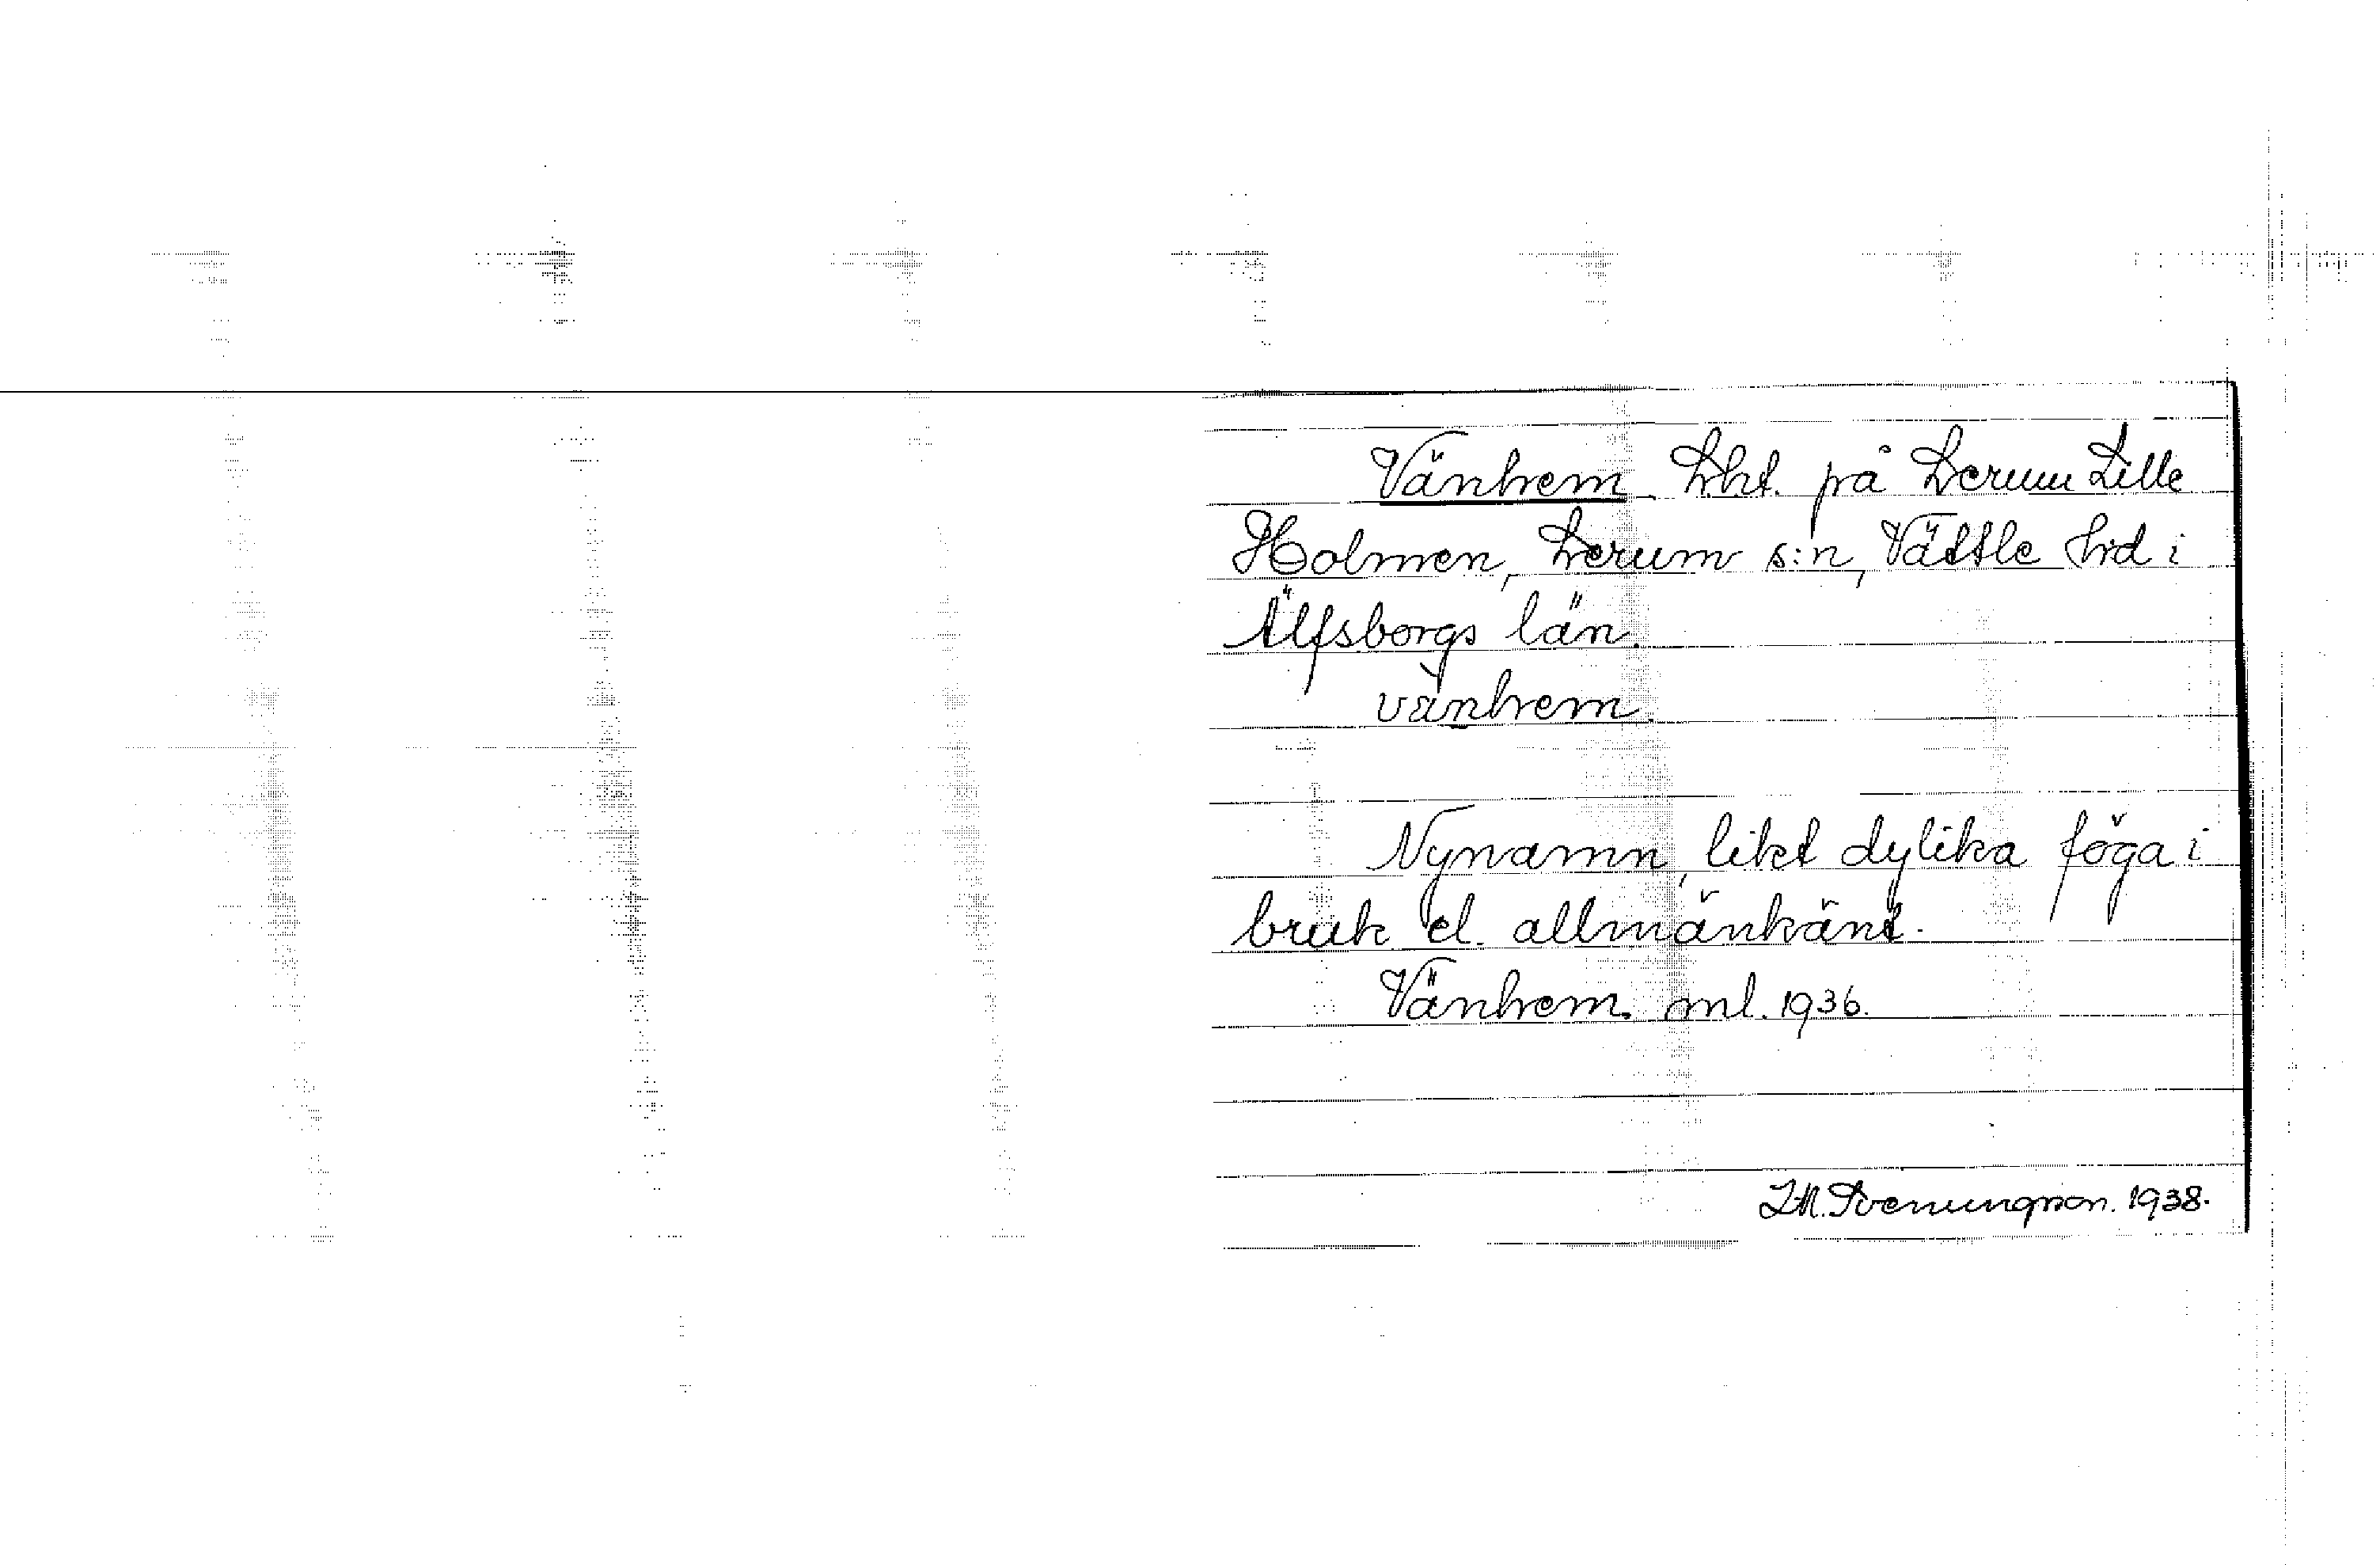 Vänhem. Lht. på Lerum Lille
Holmen, Lerum s:n, Vättle hd i
Älfsborgs län.
vànhem.
Nynamn, likt dylika föga i
bruk el. allmänkänt.
Vänhem. ml. 1936.
I.M. Svenungsson. 1938.